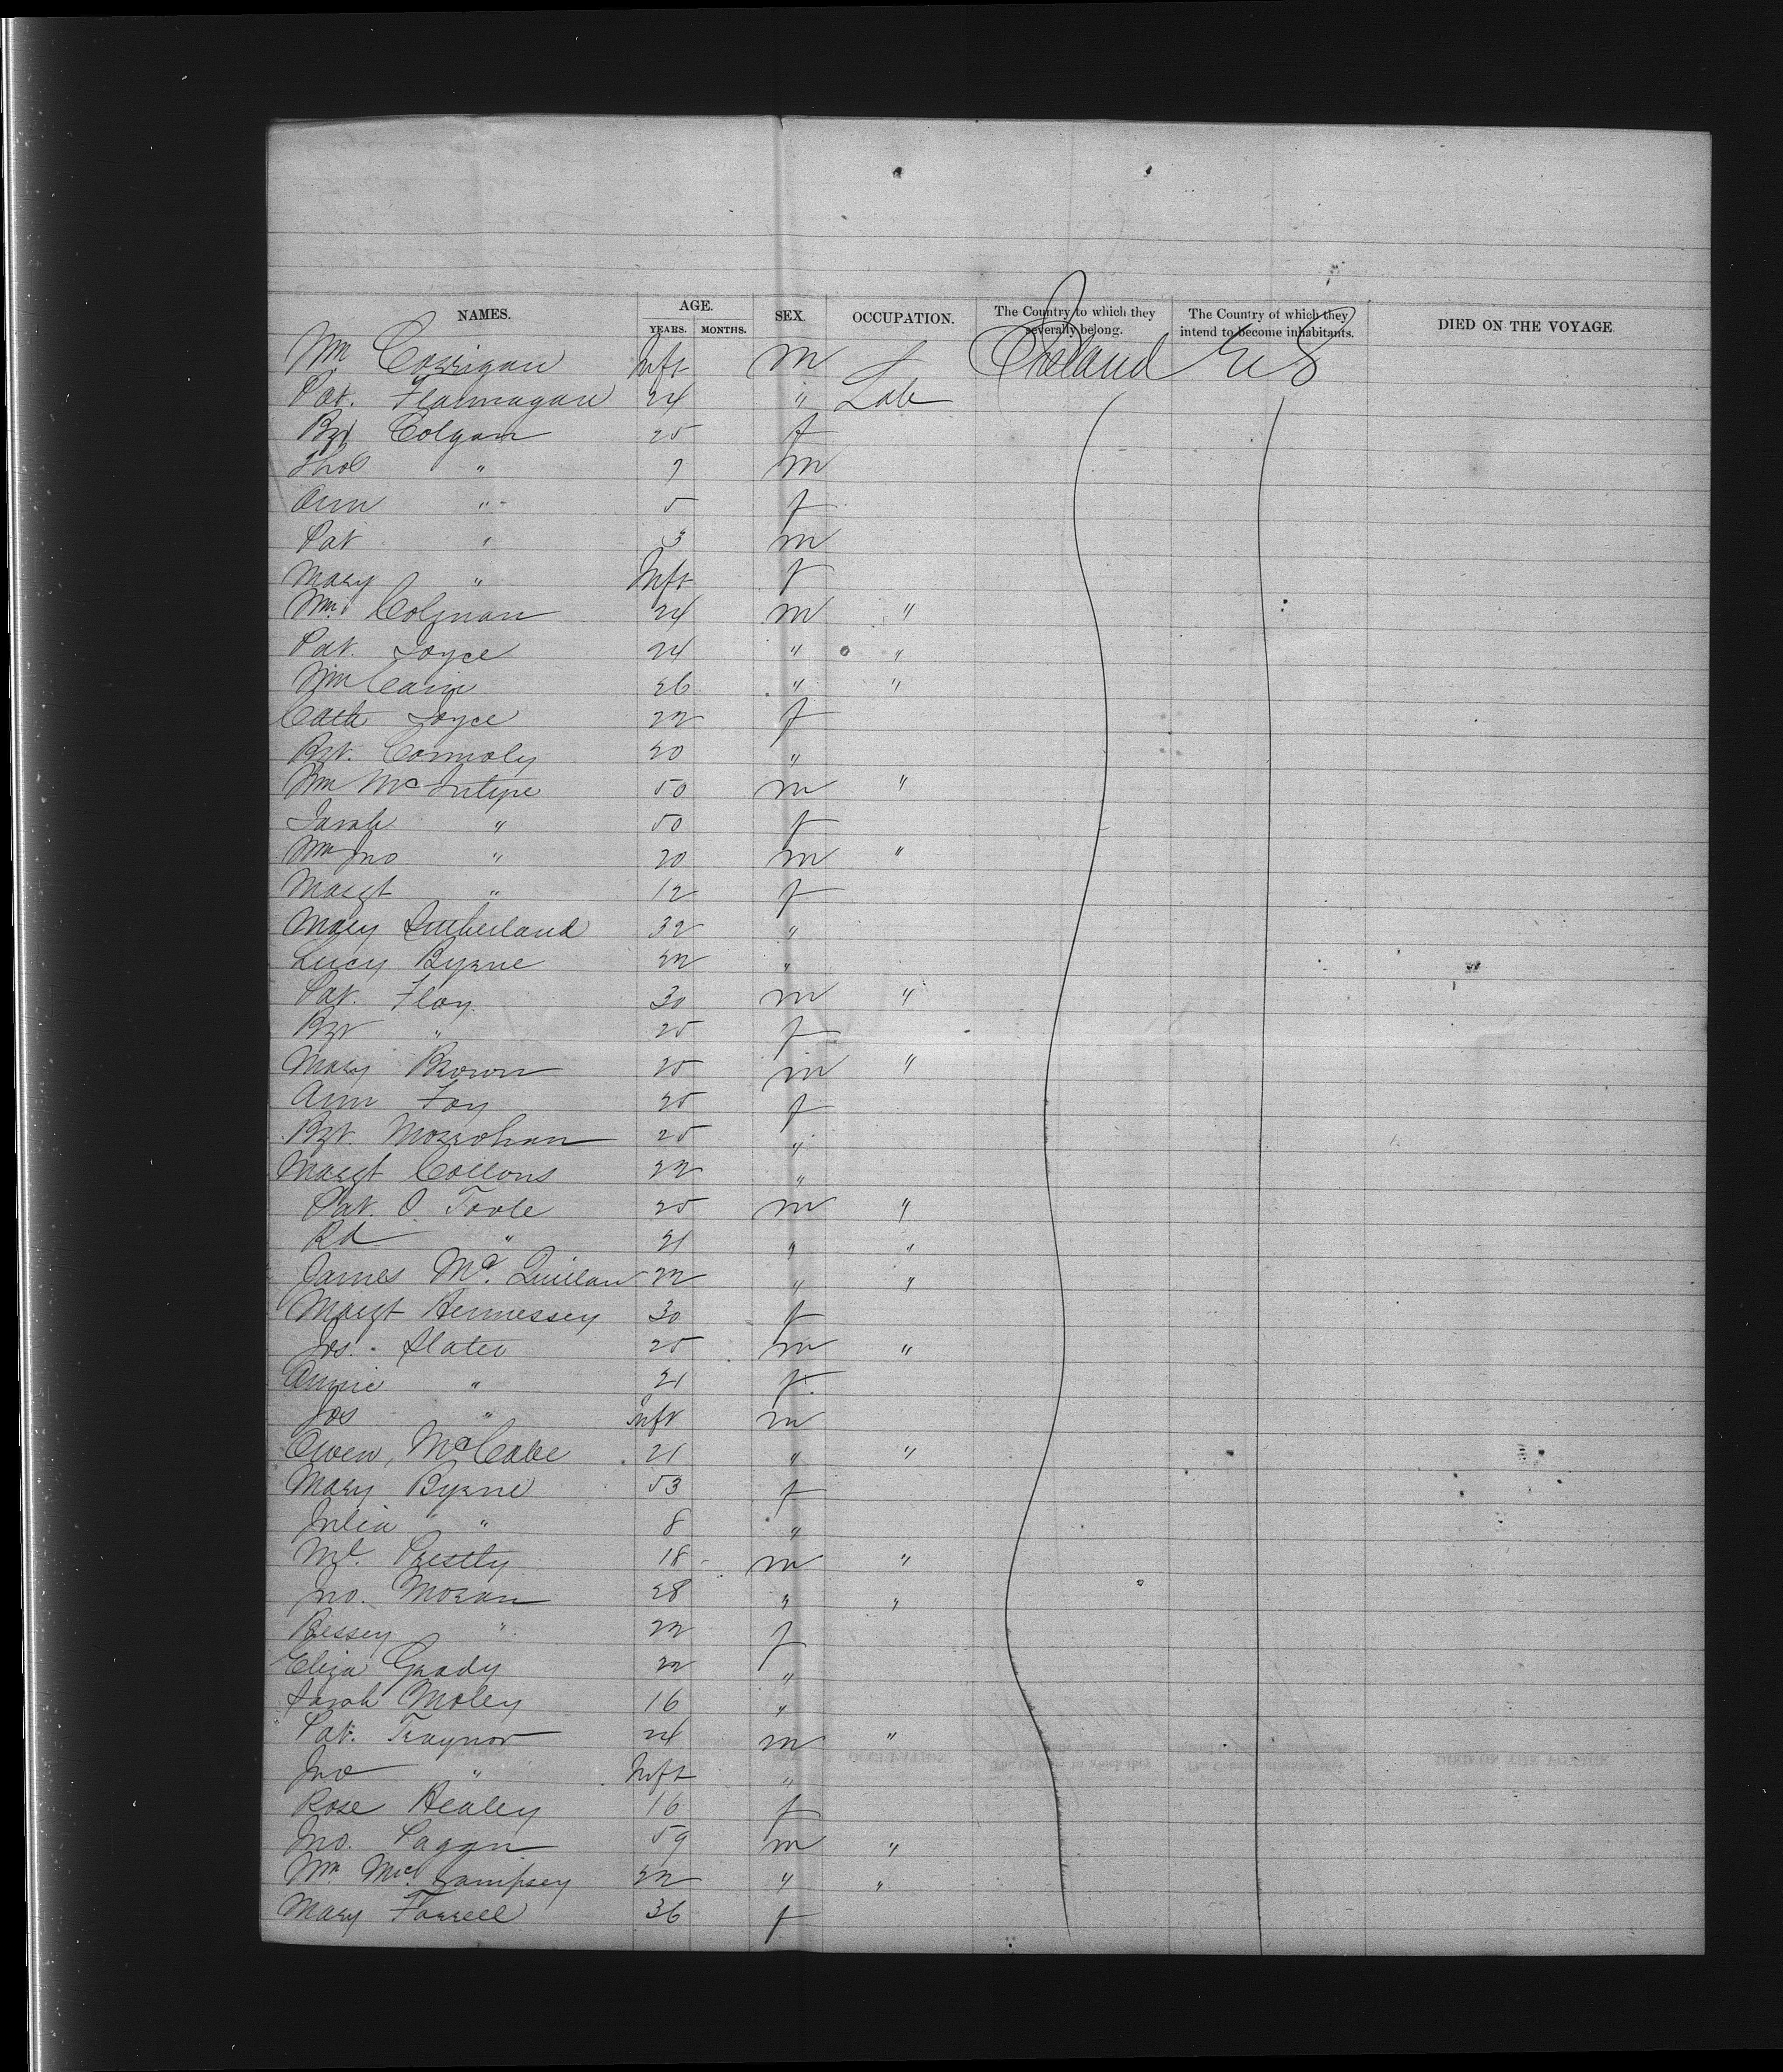 NAMES. AGE. YEARS. MONTHS. SEX. OCCUPATION. The Country to which they severally belong. The Country of which they intend to become inhabitants. DIED ON THE VOYAGE.
Wm Corrigan Inft m Ireland U S
Pat. Flannagan 24 " Lab
Bgt Colgan 25 f
Thos " 7 m
Ann " 5 f
Pat " 3 m
Mary " Inft f
Wm. Colman 24 m "
Pat. Joyce 24 " "
Wm Cain 26 " "
Cath Joyce 22 f
Bgt. Connoly 20 "
Wm McIntyre 50 m "
Sarah " 50 f
Wm Jno " 20 m "
Margt " 12 f
Mary Sutherland 32 "
Lucy Byrne 22 "
Pat. Flay 30 m "
Bgt " 25 f
Mary Brown 25 m "
Ann Foy 25 f
Bgt. Morrohan 25 "
Margt Collons 22 "
Pat. O Toole 25 m "
Rd " 21 " "
James Mc. Quillan 22 " "
Margt Hennessey 30 f
Jos. Slater 25 m "
Annie " 21 f
Jos " Inft m
Owen, McCabe 21 " "
Mary Byrne 53 f
Julia " 8 "
Ml. Prestly 18 m "
Jno. Moran 28 " "
Bessey " 22 f
Eliza Grady 22 "
Sarah Moley 16 "
Pat. Traynor 24 m "
Jno " Inft "
Rose Healey 16 f
Jno. 59 m "
Wm Mc. Sampsey 22 " "
Mary Farrell 36 f